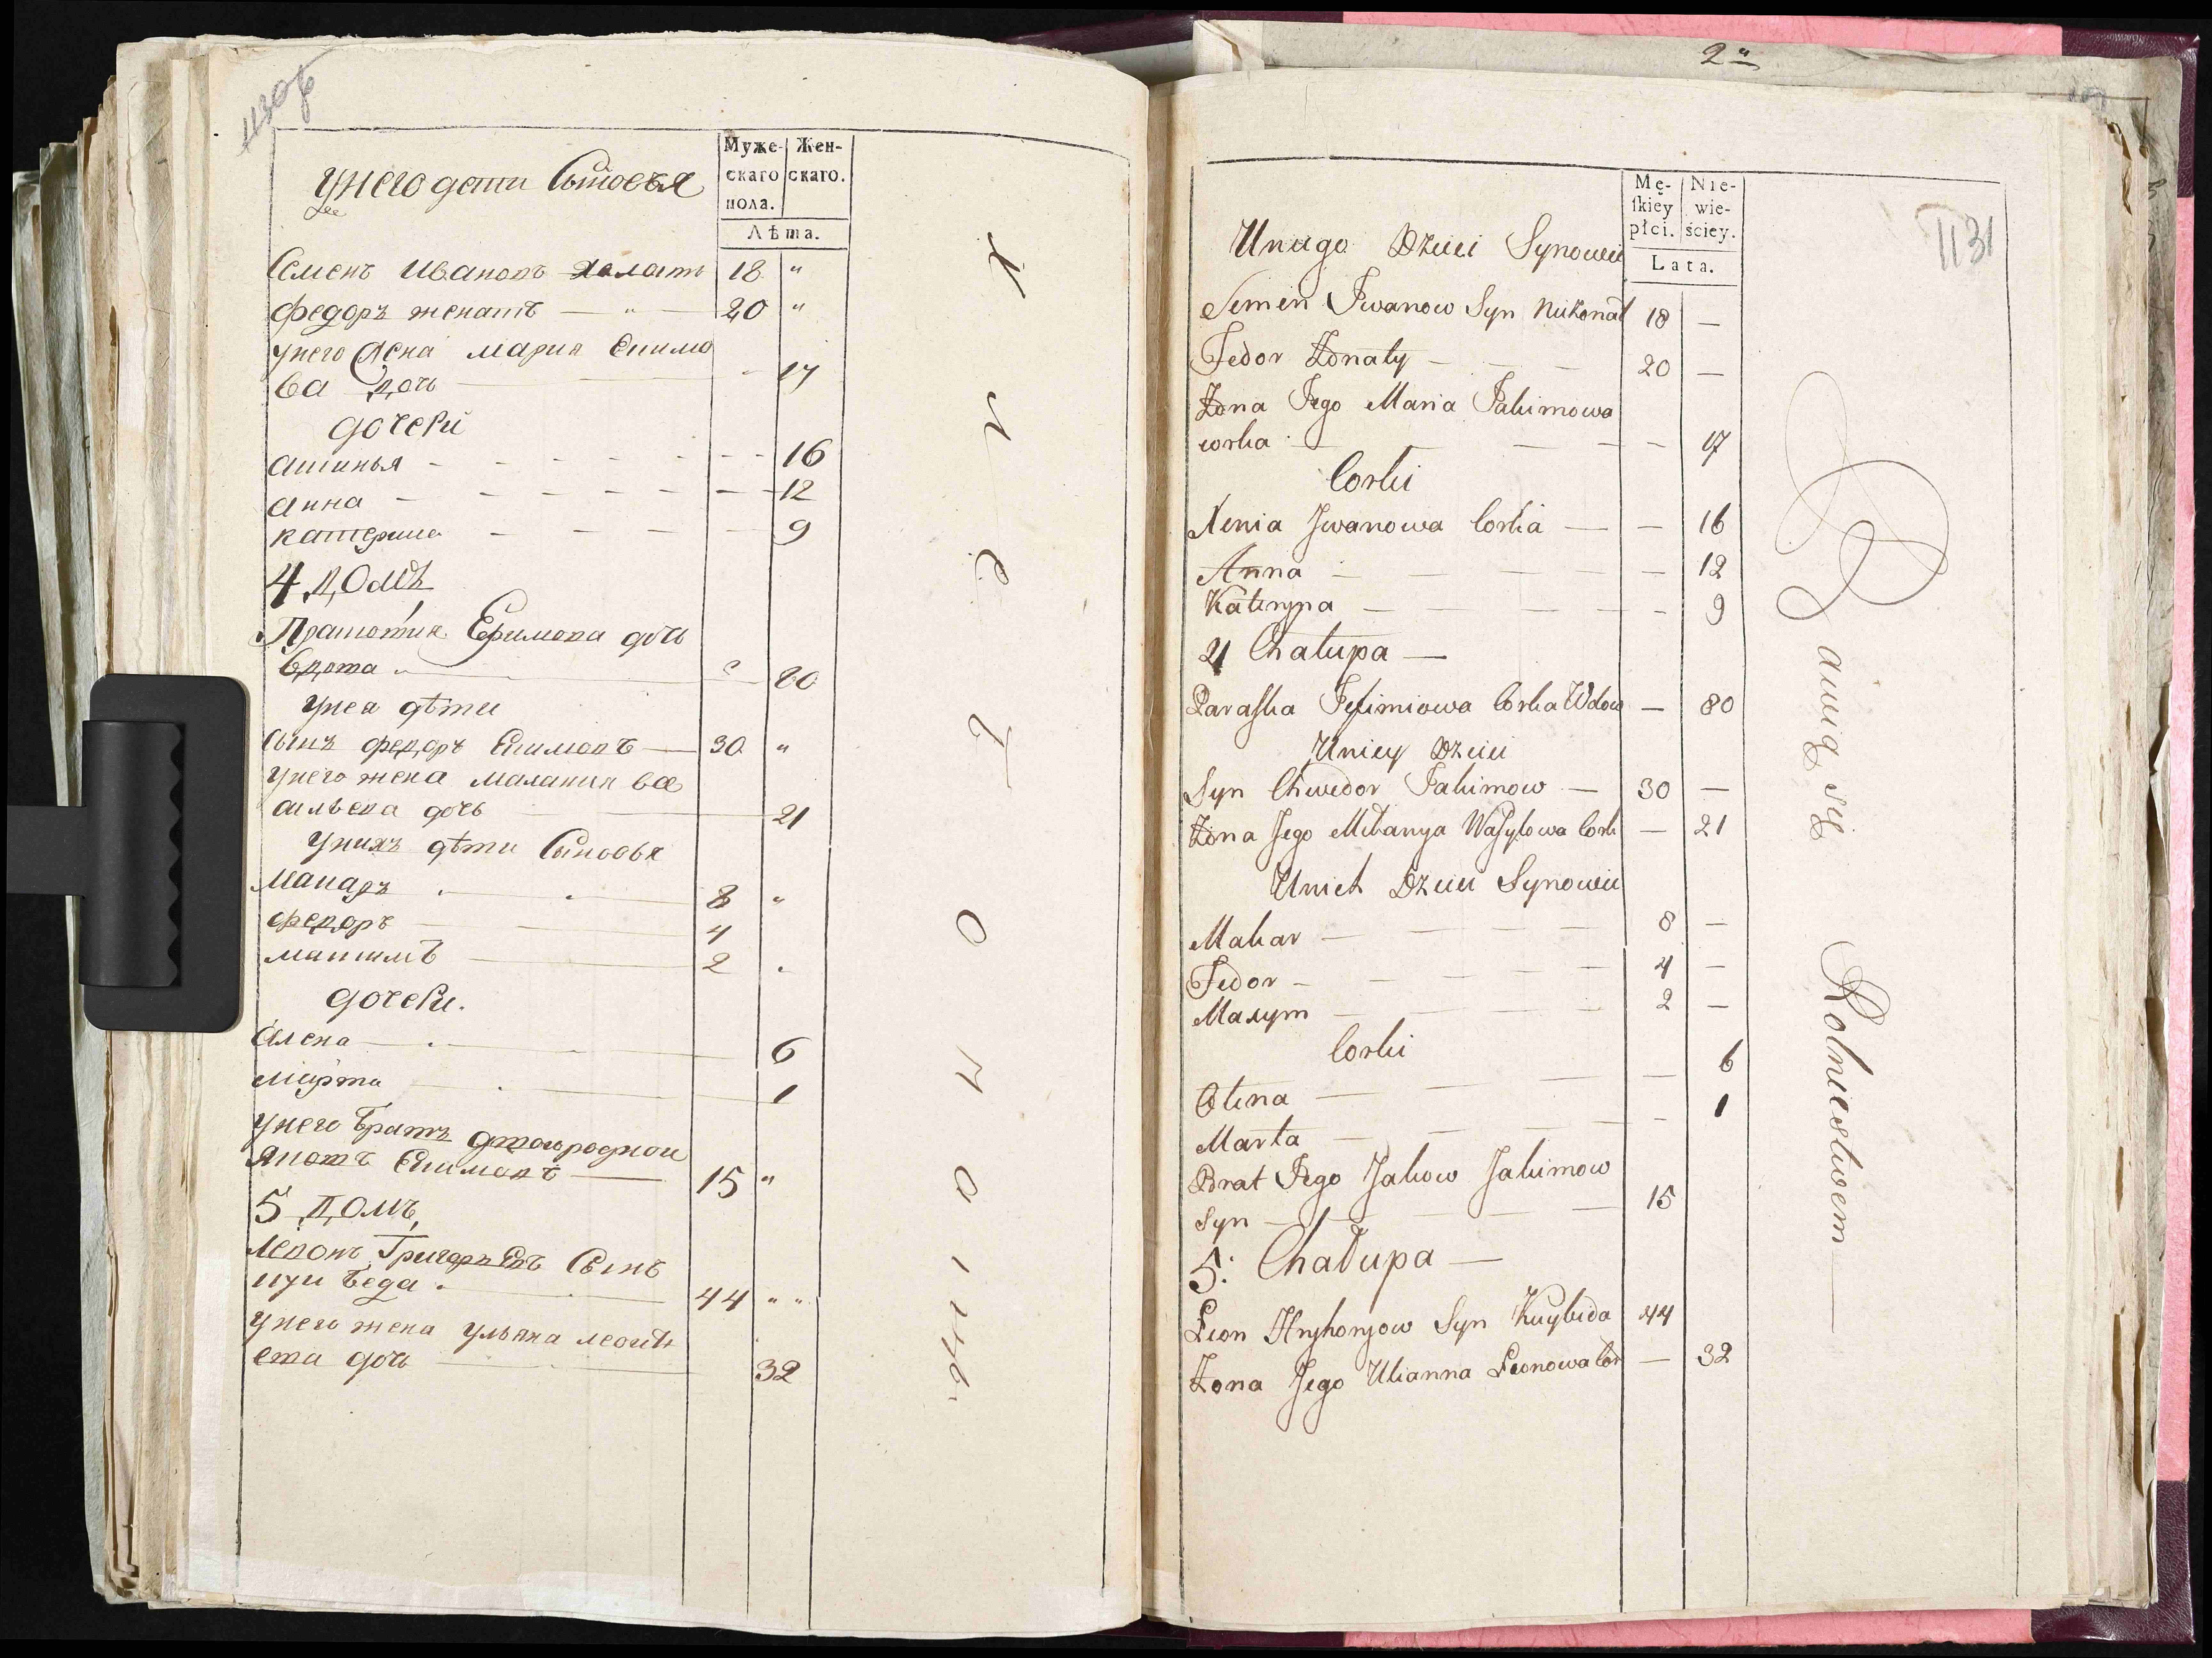 1130б
Муже- Жен-
скаго скаго.
пола.
Лѣта.
У него дети Сыновья
Семенъ Ивановъ холатъ 18 "
Федоръ женатъ — " — 20 "
У него жена Мария Екимо
ва дочь — - 17
дочери
Аксинья - - - - - - - 16
Анна - - - - - - 12
Катерина - - - - 9
4 домъ
Ефимова дочь
вдота — " 80
У нея дѣти
Сынъ Федоръ Екимовъ — 30 "
У него жена Малания Ва
сильева дочь — 21
У нихъ дѣти Сыновья
Макаръ - - 8 "
Федоръ — 4
Максимъ — 2 "
дочери.
Алена — 6
Марта — 1
У него братъ двоюродной
Яковъ Екимовъ — 15 "
5 домъ
Леонъ Григорьевъ Сынъ
Куи беда — 44 " "
У него жена Ульяна Леонть
ева дочь — 32
Хлебопашцы
2"
1131
Mę- Nie-
skiey wie-
płci. ściey.
Lata.
Unugo Dzieci Synowie
Semen Jwanow Syn Nieżonat 18 —
Fedor Żonaty — 20 —
Żona Jego Maria Jakimowa
corka — 17
Corki
Xenia Jwanowa Corka — — 16
Anna — — — — — 12
Kateryna — — — — 9
4 Chałupa —
Paraska Jefimiowa Corka Wdow — 80
Uniey Dzieci
Syn Chwedor Jakimow — 30 —
Żona Jego Melanya Wasylowa Cork — 21
Unich Dzieci Synowie
Makar — — — — 8 —
Fedor — — — — 4 —
Maxym — — — — 2 —
Corki
Olena — — — — 6
Marta — — — — 1
Brat Jego Jakow Jakimow
Syn — — — — 15
5: Chałupa —
Leon Hryhoryow Syn Kuybida 44
Żona Jego Ulianna Leonowa Cor — 32
Bawią się Rolnictwem —